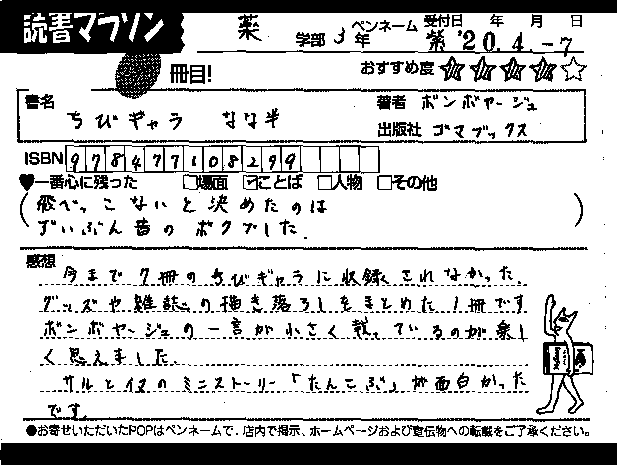 読書マラソン
薬 学部 3年 ペンネーム 紫
受付日 年 月 日
'20.4.-7
冊目!
おすすめ度 ★★★★☆
書名 ちびギャラ なな半
著者 ボンボヤージュ
出版社 ゴマブックス
ISBN 9784777108299
♥一番心に残った □場面 ☑ことば □人物 □その他
(飛べっこないと決めたのは
ずいぶん昔のボクでした.)
感想
今まで7冊のちびギャラに収録されなかった,
グッズや雑誌の描き落ろしをまとめた1冊です
ボンボヤージュの一言が小さく載っているのが楽し
く思えました.
サルとイヌのミニストーリー「たんこぶ」が面白かった
です.
●お寄せいただいたPOPはペンネームで、店内で掲示、ホームページおよび宣伝物への転載をご了承ください。